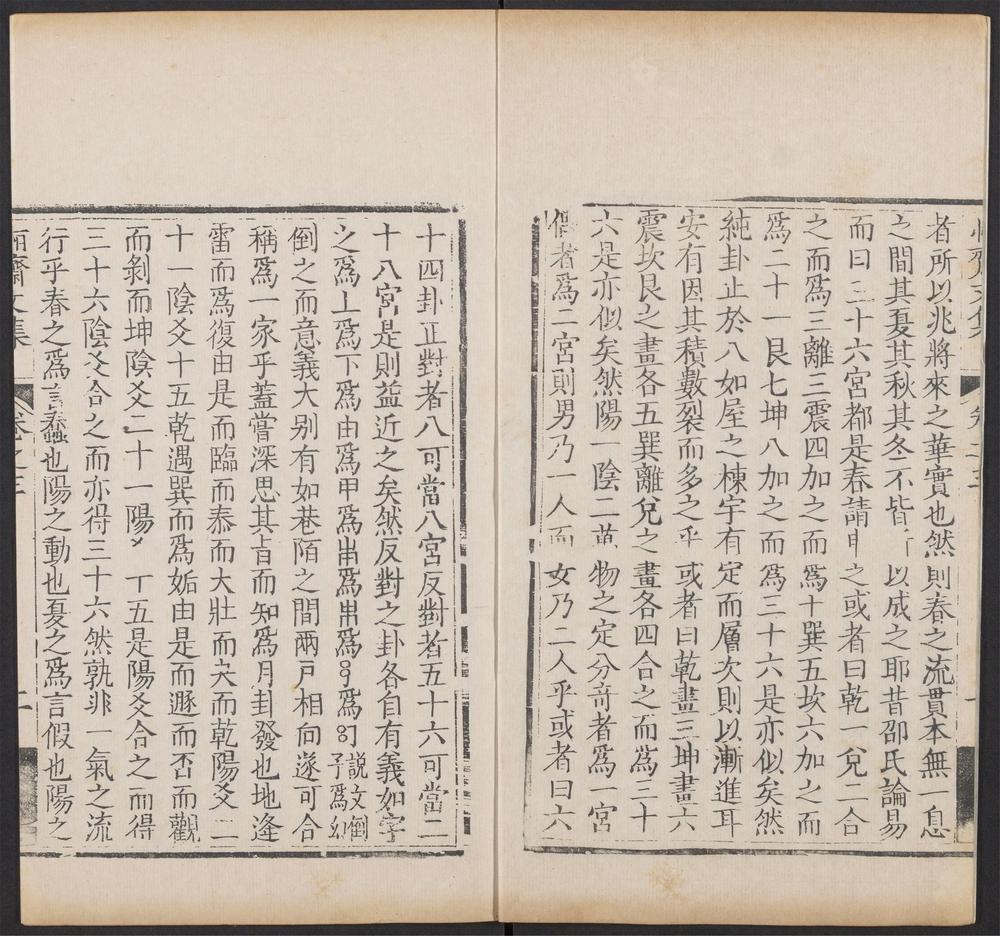 者所以兆將來之華實也然則春之流貫本無一息
之間其夏其秋其冬不皆 以成之耶昔邵氏論易
而曰三十六宮都是春請 之或者曰乾一兌二合
之而爲三離三震四加之而爲十巽五坎六加之而
爲二十一艮七坤八加之而爲三十六是亦似矣然
純卦止於八如屋之棟宇有定而層次則以漸進耳
安有因其積數裂而多之乎或者曰乾畫三坤畫六
震坎艮之畫各五巽離兌之畫各四合之而爲三十
六是亦似矣然陽一陰二萬物之定分奇者爲一宮
偶者爲二宮則男乃一人而女乃二人乎或者曰六
十四卦正對者八可當八宮反對者五十六可當二
十八宮是則益近之矣然反對之卦各自有義如字
之爲上爲下爲由爲甲爲爲爲爲說文倒子爲幻
倒之而意義大别有如巷陌之間兩戸相向遂可合
稱爲一家乎蓋嘗深思其旨而知爲月卦發也地逢
雷而爲復由是而臨而泰而大壯而夬而乾陽爻二
十一陰爻十五乾遇巽而爲姤由是而遯而否而觀
而剝而坤陰爻二十一陽 五是陽爻合之而得
三十六陰爻合之而亦得三十六然孰非一氣之流
行乎春之爲言蠢也陽之動也夏之爲言假也陽之
齋文集
卷之三
二